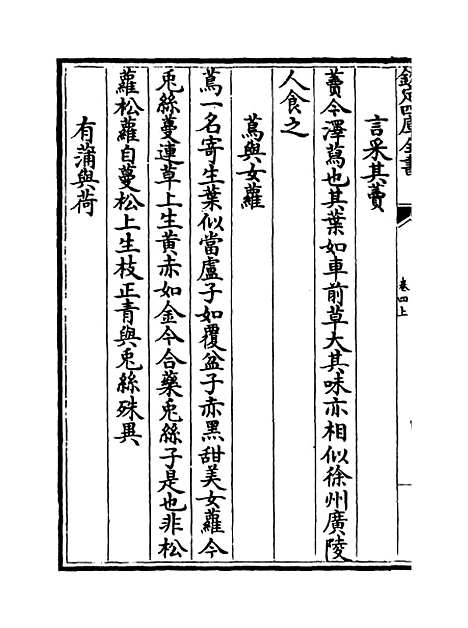 欽定四庫全書
卷四上
言采其藚
藚今澤蔿也其葉如車前草大其味亦相似徐州廣陵
人食之
蔦與女蘿
蔦一名寄生葉似當盧子如覆盆子赤黑甜美女蘿今
兎絲蔓連草上生黄赤如金今合藥兎絲子是也非松
蘿松蘿自蔓松上生枝正青與兎絲殊異
有蒲與荷